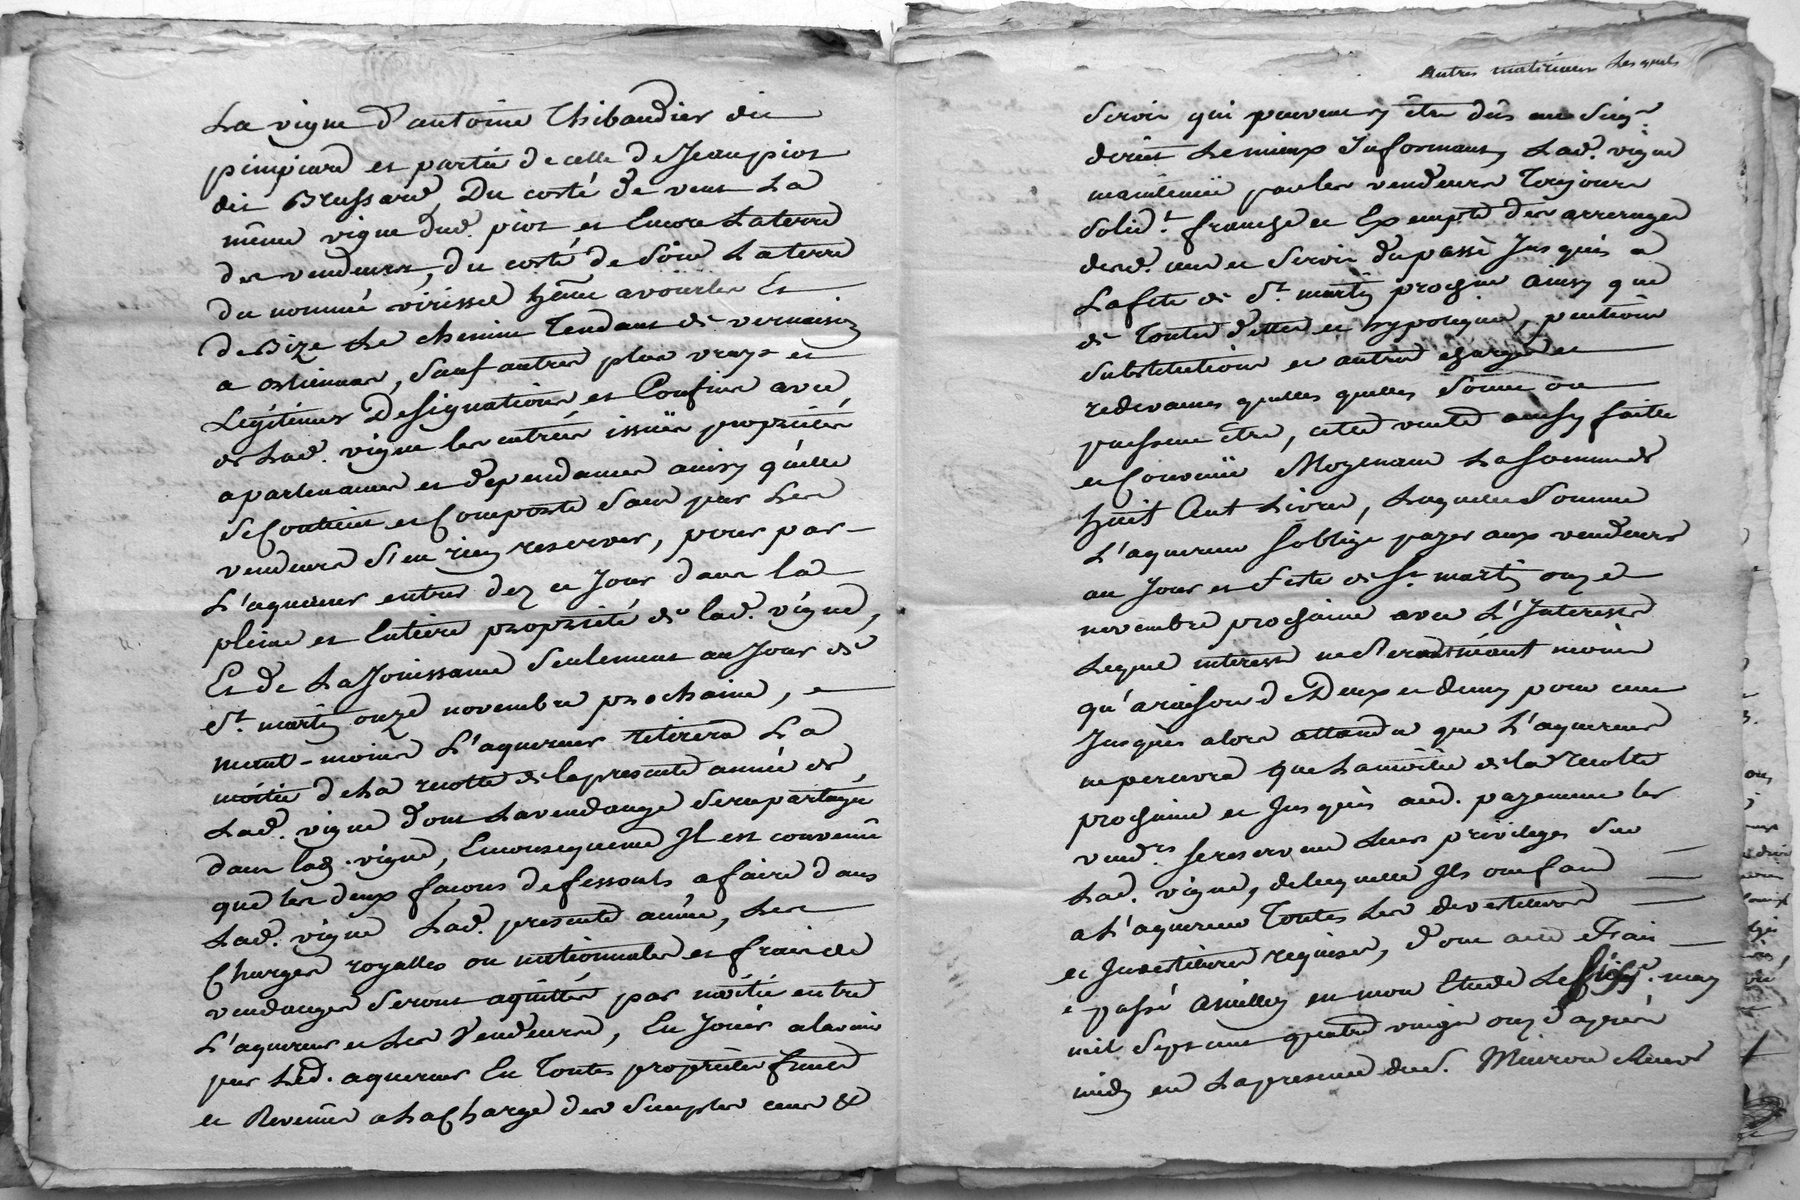 La vigne d'antoine Thibaudier dit
pimpiard et partie de celle de Jean piot
dit Brussard, Du costé de vent La
même vigne dud. piot et Encore La terre
des vendeurs, du costé de Soir La terre
du nommé avouiller Et
de Bize Le chemin Tendant de vernaison
a orlienas, Sauf autres plus vrays et
Legitimes Designations et Confins avec
de Lad. vigne les entrées issües proprietés
apartenances et dépendances ainsy qu'elle
Se Contient et Comporte Sans par Les
vendeurs S'en rien reserver, pour par
L'aquereur entrer dez ce Jour dans la
pleine et Entiere proprieté de lad. vigne,
Et de La Jouissance Seulement au Jour de
St. martin onze novembre prochain,
neant-moins L'aquereur retirera La
moitié de La recolte de la presente année de
Lad. vigne dont La vendange Sera partagée
dans lad. vigne, En consequence Il est convenü
que les deux façons de fessouls a faire dans
Lad. vigne Lad. presente année, Les
Charges royalles ou nationnales et frais de
vendanges Seront aquittés par moitié entre
L'aquereur et Les Vendeurs, En Jouir a l'avenir
par Led. aquereur En Toutes proprietés fruits
et Revenus a La Charge des Simples cens &
Autres Les quels
Servis qui peuvent y être dûs au Seigr.
direct Le mieux Informant, Lad. vigne
maintenüe par les vendeurs Toujours
Solidt. franche et Exempte des arrerages
desd. cens et Servis du passé Jusques a
La fete de St. martin prochain ainsy que
de Toutes dettes et hypoteques, pentions
Substitutions et autres charges et
redevances quelles quelles Soient ou
puissent être, cette vente aussy faitte
et Convenüe Moyenant La Somme de
huit Cent Livres, Laquelle Somme
L'aquereur S'oblige payer aux vendeurs
au Jour et Fete de St. martin onze
novembre prochain avec L'Interest
Lequel interest ne Sera moins
qu'a raison de Deux et demy pour cent
Jusques alors attendu que L'aquereur
ne percevra que La moitié de la recolte
prochaine et Jusques aud. payement les
vendrs. Se reservent Leurs privileges Sur
Lad. vigne, de laquelle Ils ont fait
a L'aquereur Toutes Les devestitures
et Investitures requises, dont acte Fait
et passé a millery en mon Etude Le may
mil Sept cent quatre vingt onze d'après
midy en La presence de S. Claude